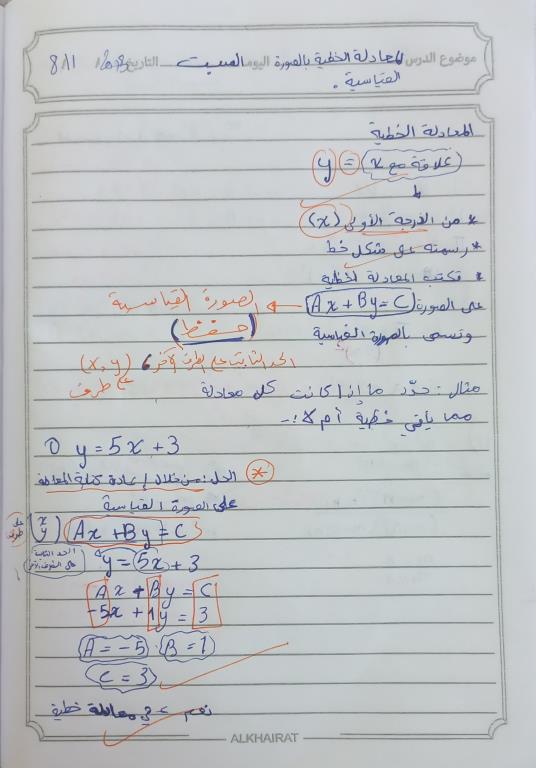 موضوع الدرس المعادلة الخطية بالصورة اليوم السبت التاريخ 8/1
القياسية.
المعادلة الخطية
علاقة مع x = y
* من الدرجة الأولى (x)
* رسمته على شكل خط
* تكتب المعادلة الخطية
على الصورة Ax + By = C ← الصورة القياسية
(حفظ)
وتسمى بالصورة القياسية
الحد الثابت على الطرف الآخر، (x, y)
على طرف
مثال: حدّد ما إذا كانت كل معادلة
مما يأتي خطية أم لا:-
① y = 5x + 3
* الحل: من خلال إعادة كتابة المعادلة
على الصورة القياسية
Ax + By = C (x y) على طرف
الحد الثابت
على الطرف الآخر
y = 5x + 3
Ax + By = C
-5x + 1y = 3
A = -5 B = 1
C = 3
نعم هي معادلة خطية
ALKHAIRAT